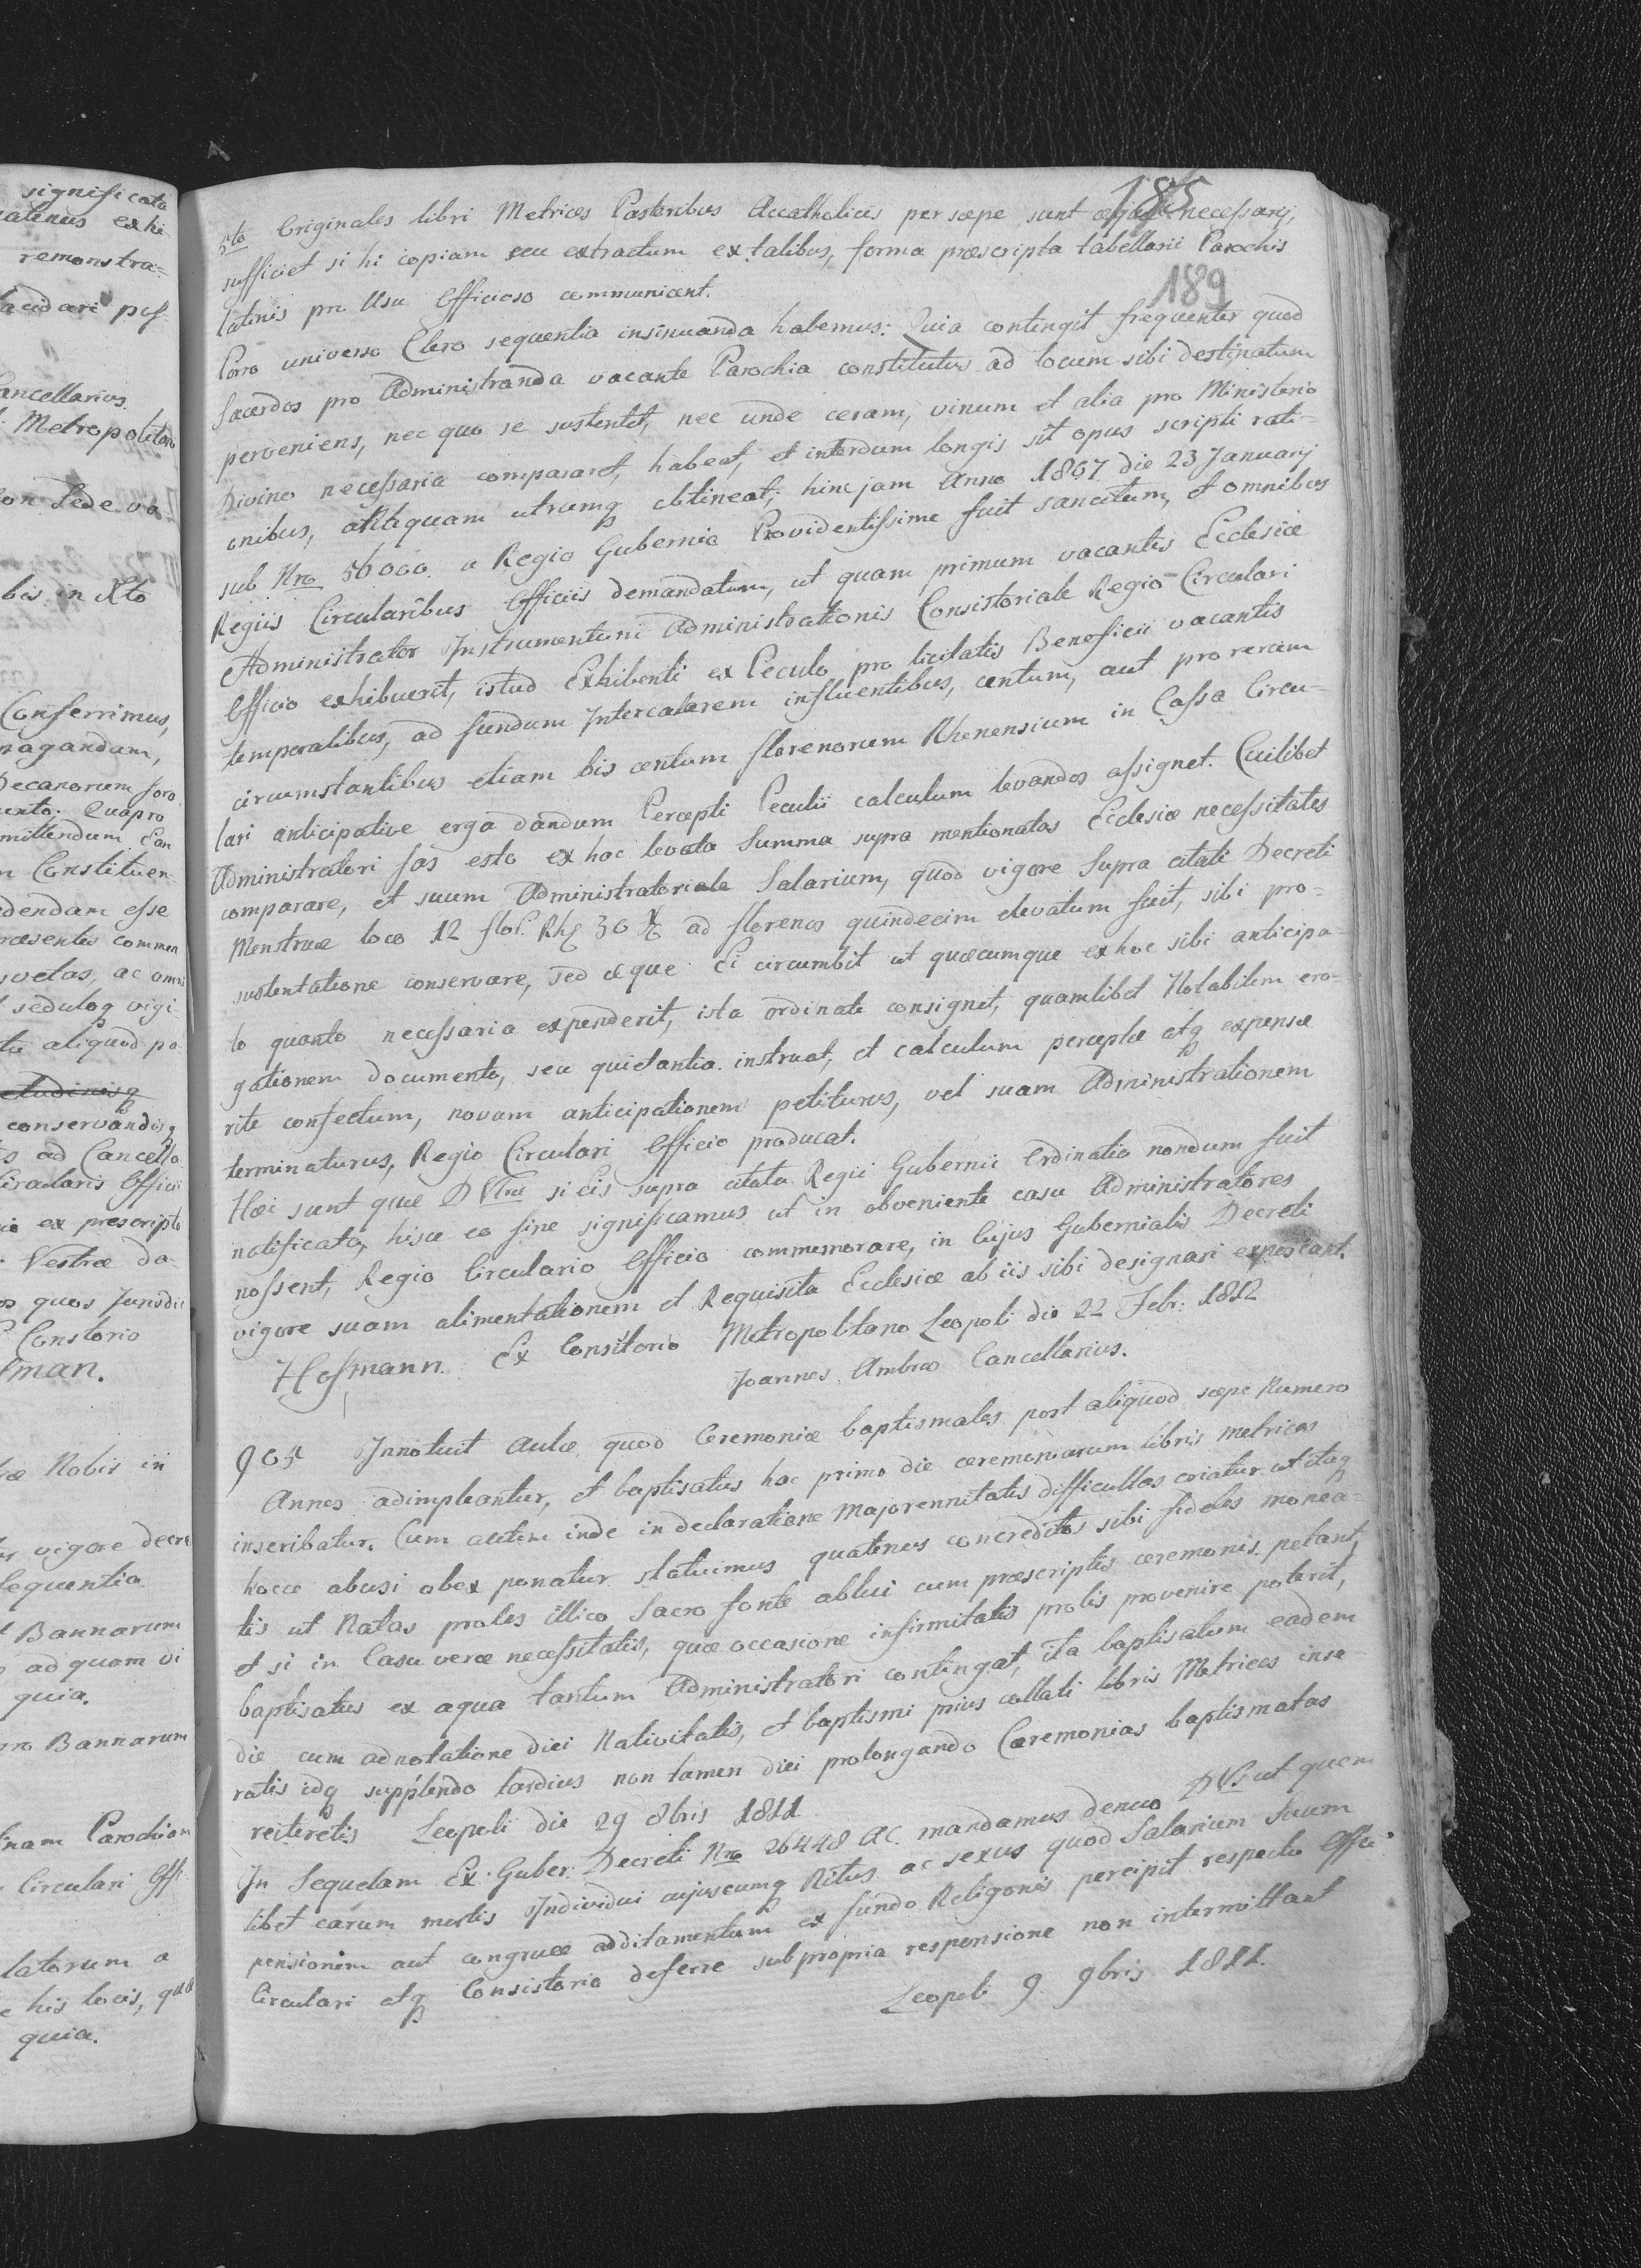 185
189
5to Originales libri Metrices Pastoribus Accatholicis persæpe sunt æque necessarij,
sufficiet si hi copiam seu extractum ex talibus, forma præscripta tabellarii Parochis
latinis pro Usu Officioso communicent.
Porro universo Clero sequentia insinuanda habemus: Quia contingit frequenter quod
Sacerdos pro Administranda vacante Parochia constitutus ad locum sibi destinatum
perveniens, nec quo se sustentet, nec unde ceram, vinum et alia pro Ministerio
Divino necessaria compararet, habeat, et interdum longis sit opus scripti rati-
onibus, antequam utrumq obtineat; hinc jam Anno 1807 die 23 Januarij
sub Nro 56000 a Regio Gubernio Providentissime fuit sancitum, et omnibus
Regiis Circularibus Officiis demandatum, ut quam primum vacantis Ecclesiæ
Administrator Instrumentum Administrationis Consistoriale Regio Circulari
Officio exhibuerit, istud Exhibenti ex Peculo pro licitatis Beneficii vacantis
temporalibus, ad fundum Intercalarem influentibus, centum, aut pro rerum
circumstantibus etiam bis centum florenorum Rhenensium in Cassa Circu-
lari anticipative erga dandum Percepti Peculii calculum levandos assignet. Cuilibet
Administratori fas esto ex hac levata Summa supra mentionatas Ecclesiæ necessitates
comparare, et suum Administratoriale Salarium, quod vigore Supra citati Decreti
Menstruæ loco 12 flor. Rh 30 X ad florenos quindecim elevatum fuit, sibi pro-
sustentatione conservare, sed æque Ei circumbit ut quæcumque ex hoc sibi anticipa-
to quanto necessaria expenderit, ista ordinate consignet, quamlibet Notabilem ero-
gationem documento, seu quietantia instruat, et calculum perceptæ atq expensæ
rite confectum, novam anticipationem petiturus, vel suam Administrationem
terminaturus, Regio Circulari Officio producat.
Hæc sunt quæ D Vtræ si eis supra citata Regii Gubernii Ordinatio nondum fuit
notificata, hisce eo fine significamus ut in obveniente casu Administratores
nossent, Regio Circulario Officio commemorare, in Cujus Gubernialis Decreti
vigore suam alimentationem et Requisita Ecclesiæ ab iis sibi designari exposcant.
Hofmann. Ex Consitorio Metropolitano Leopoli die 22 Febr: 1812
Joannes Ambros Cancellarius.
905 Innotuit Aulæ quod Ceremoniæ baptismales post aliquod sæpe Numero
Annos adimpleantur, et baptisatus hoc primo die ceremoniarum libris metricos
inscribatur. Cum autem inde in declaratione Majorennitatis difficultas oriatur ut itaq
hocce abusi obex ponatur statuimus quatenus concreditos sibi fideles monea-
tis ut Natas proles illico Sacro fonte ablui cum præscriptis ceremonis petant,
et si in Casu veræ necessitatis, quæ occasione infirmitatis prolis provenire poterit,
baptisatus ex aqua tantum Administratori contingat, ita baptisatum eadem
die cum adnotatione diei Nativitatis, et baptismi prius collati libris Metrices inse-
ratis idq supplendo tardius non tamen diei prolongando Cæremonias baptismatas
reiteretis Leopoli die 29 8bris 1811
In Sequelam Ex. Guber: Decreti Nro 26448 AC. mandamus denuo DVs. ut quem
libet earum mortis Individui cujuscumq Ritus ac sexus quod Salarium Suum
pensionem aut congruæ additamentum ex fundo Religonis percipit respectu Offici
Circulari atq Consistorio deferre sub propria responsione non intermittant
Leopoli 9 9bris 1811.